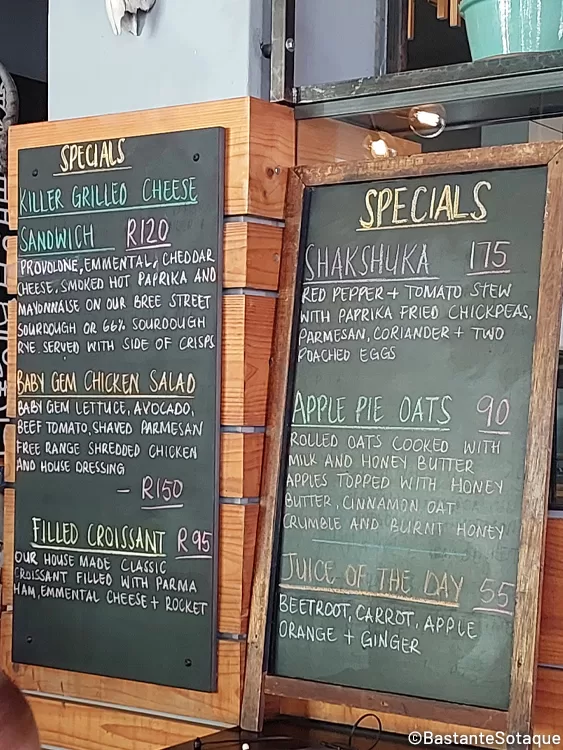 SPECIALS
KILLER GRILLED CHEESE
SANDWICH R120
PROVOLONE, EMMENTAL, CHEDDAR
CHEESE, SMOKED HOT PAPRIKA AND
MAYONNAISE ON OUR BREE STREET
SOURDOUGH OR 66% SOURDOUGH
RYE. SERVED WITH SIDE OF CRISPS
BABY GEM CHICKEN SALAD
BABY GEM LETTUCE, AVOCADO,
BEEF TOMATO, SHAVED PARMESAN
FREE RANGE SHREDDED CHICKEN
AND HOUSE DRESSING
- R150
FILLED CROISSANT R95
OUR HOUSE MADE CLASSIC
CROISSANT FILLED WITH PARMA
HAM, EMMENTAL CHEESE + ROCKET
SPECIALS
SHAKSHUKA 175
RED PEPPER + TOMATO STEW
WITH PAPRIKA FRIED CHICKPEAS,
PARMESAN, CORIANDER + TWO
POACHED EGGS
APPLE PIE OATS 90
ROLLED OATS COOKED WITH
MILK AND HONEY BUTTER
APPLES TOPPED WITH HONEY
BUTTER, CINNAMON OAT
CRUMBLE AND BURNT HONEY
JUICE OF THE DAY 55
BEETROOT, CARROT, APPLE
ORANGE + GINGER
©BastanteSotaque